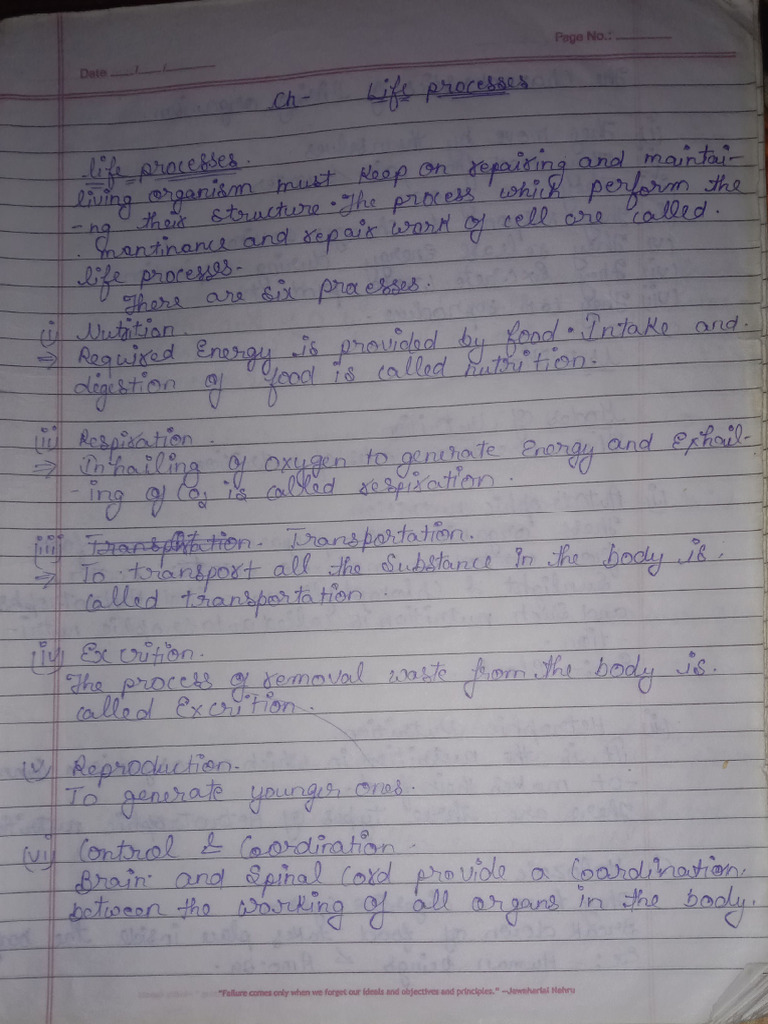 Page No.:
Date ___/___/___
Ch- Life processes
life processes.
living organism must keep on repairing and maintai-
-ng their structure. The process which perform the
. mantinance and repair work of cell are called.
life processes-
There are six processes.
(i) Nutrition.
⇒ Required Energy is provided by food. Intake and.
digestion of food is called nutrition.
(ii) Respiration.
⇒ Inhailing of oxygen to generate Energy and Exhail-
-ing of CO₂ is called respiration.
(iii) Transportation. Transportation.
⇒ To transport all the substance in the body is.
called transportation.
(iv) Excrition.
The process of removal waste from the body is.
called Excrition.
(v) Reproduction.
To generate younger ones.
(vi) Control & Coordination.
Brain and Spinal Cord provide a Coordination.
between the working of all organs in the body.
"Failure comes only when we forget our ideals and objectives and principles." –Jawaharlal Nehru